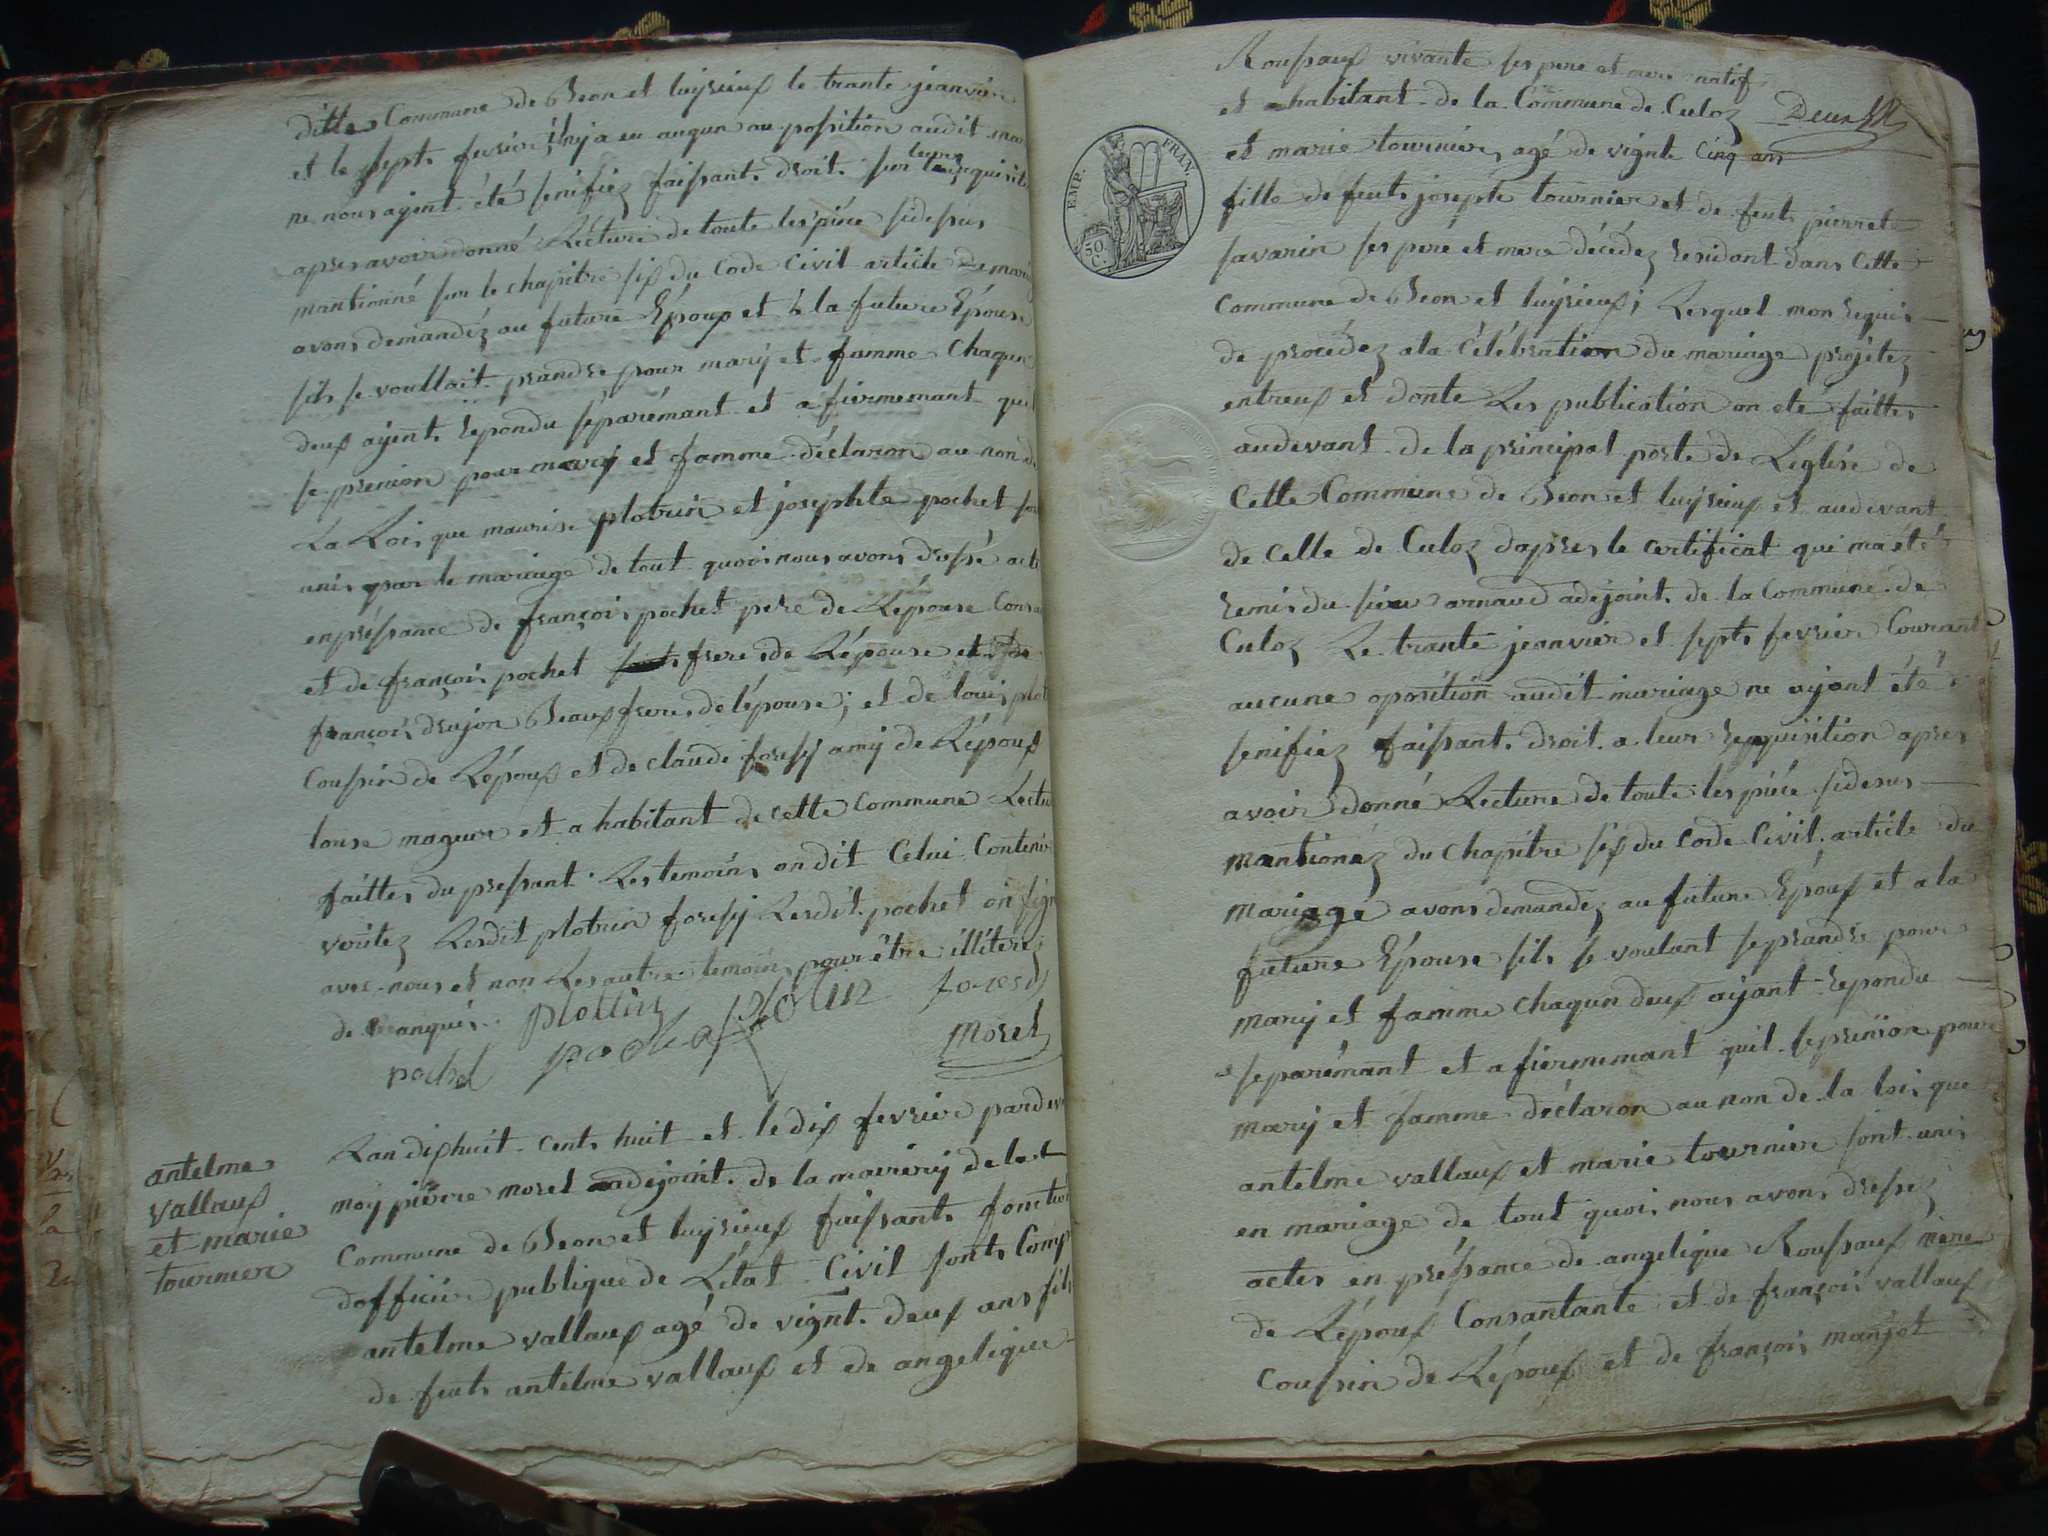 ditte Commune de Beon et luyrieux le trante jeanvier
et le sept fevrier il nÿ a eu auqun au position audit mar
ne nous ayent été senifiez faissant droit sur leurs requisit
apres avoir donné Lecture de toute les piéce sidessus
mantionné sur le chapitre six du Code Civil article de mari
avons demandéz au future Époux et à la future Épouse
sils se voullait prandre pour marÿ et famme Chaqun
deux ayent repondu séparémant et afiermemant quil
se prenion pour marÿ et famme déclaron au non de
La Loi que maurise plotrin et josephte pochet son
unis par le mariage de tout quoi nous avons dressé acte
en préssance de françois pochet pere de Lépouse Consa
et de françois pochet frere de Lépouse et de
françois drujon Beaux frere de lépouse; et de louis plot
Coussin de Lépoux et de claude foresÿ amÿ de Lépoux
touse mageure et a habitant de cette Commune Lectu
faittes du pressant Les temoins on dit Celui Contenir
veritez Lesdit plotrin foresÿ Lesdit pochet on sign
avec nous et non Les autre temoins pour être illétere
de anquis. plottin plotin foresÿ
pochet pochet Morel
antelme
vallaux
et marie
tournier
Lan dixhuit cents huit et le dix fevrier pardev
moÿ pierre morel adejoint de la mairerÿ de la
Commune de Beon et luyrieux faissants fonction
dofficier publique de Létat Civil sonts Comp
antelme vallaux agé de vignt deux ans fils
de feuts antelme vallaux et de angelique
Roussaux vivante ses pere et mere natif
et habitant de la Commune de Culoz
EMP. FRAN.
50 C.
et marie tournier, agé de vignte cinq ans
fille de feuts josepte tournier et de feuts pierrete
savarin ses peré et mere décédez residant dans Cette
Commune de Beon et luyrieux; Lesquel mon requis
de procédez a la Célébration du mariage projetez
entreux et donte Les publication on eté faittes
audevant de la principal porte de Léglise de
Cette Commune de Beon et luyrieux et audevant
de Celle de Culoz dapres le certificat qui ma été
remis du sieur arnaud adejoint de la Commune de
Culoz Le trante jeanvier et septs fevrier Courant
aucune oposition audit mariage ne ayant été
senifiez faissant droit a leur requisition apres
avoir donné Lecture de toute les piéce sidesus
mantionéz du Chapitre six du Code Civil article du
mariage avons demandez au future Époux et a la
future Épouse sils se voulant se prandre pour
marÿ et famme chaqun deux aÿant repondu
separémant et afiermemant quil se prenion pour
marÿ et famme déclaron au non de la loi que
antelme vallaux et marie tournier sont unis
en mariage de tout quoi nous avons dressez
actes en préssance de angelique Roussaux mere
de Lépoux Consantante et de françois vallaux
Coussin de Lépoux et de françois manjot